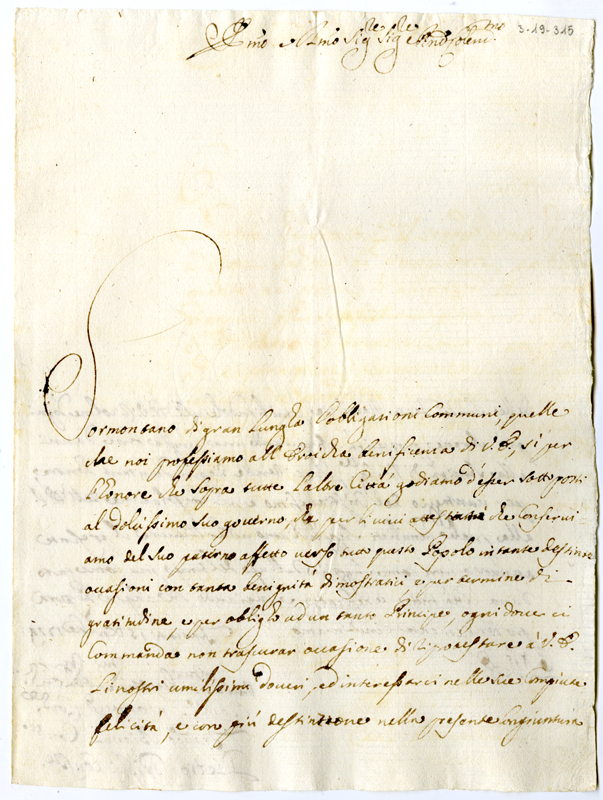 3-19-315
Emo e Rmo Sig.re Sig.re
Sormontano di gran Lungha l'obbligationi Communi, quelle
che noi professiamo all'Eroicha beneficenza di V.E., sì per
l'honore che sopra tutte l'altre Città godiamo d'esser sottoposti
al dolcissimo suo governo, che per li vivi attestati che conservi-
amo del suo paterno affetto verso tutto questo Popolo in tante destinte
occasioni con tanta benignità dimostratici e per termine di
gratitudine, e per obbligho ad un tanto Principe, ogni dovere ci
Commanda non trascurar occasione di
à V.E.
Li nostri umilissimi doveri, ed interessarci nelle sue Compiute
felicità, e con più destintione nella presente Congiuntura